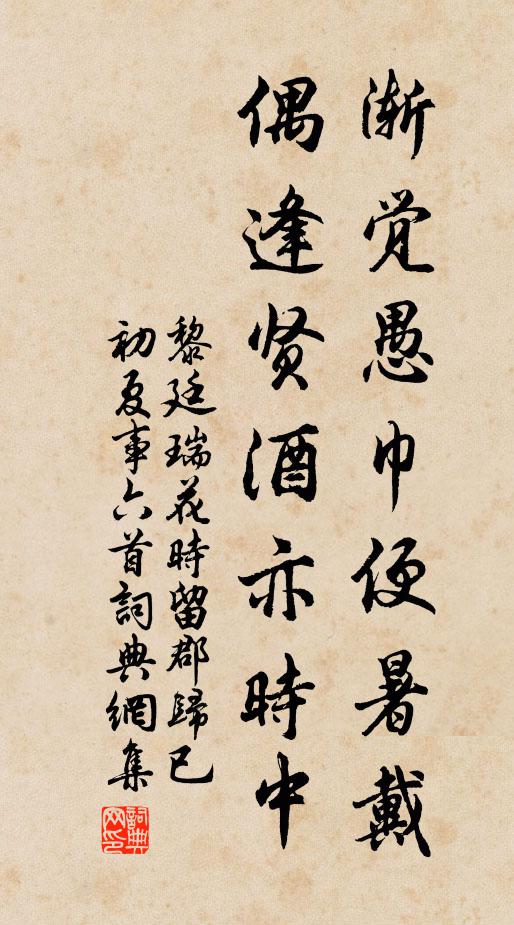 渐觉愚巾便暑戴
偶逢贤酒亦時中
黎廷瑞花時留郡歸已
初夏事六首詞典網集
詞典
网印